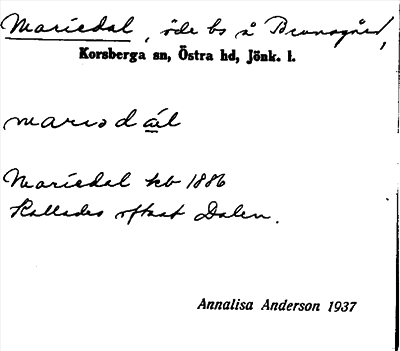 Mariedal, öde bs å Brunsgård,
Korsberga sn, Östra hd, Jönk. l.
marıodál
Mariedal kb 1886
Kallades oftast Dalen.
Annalisa Anderson 1937